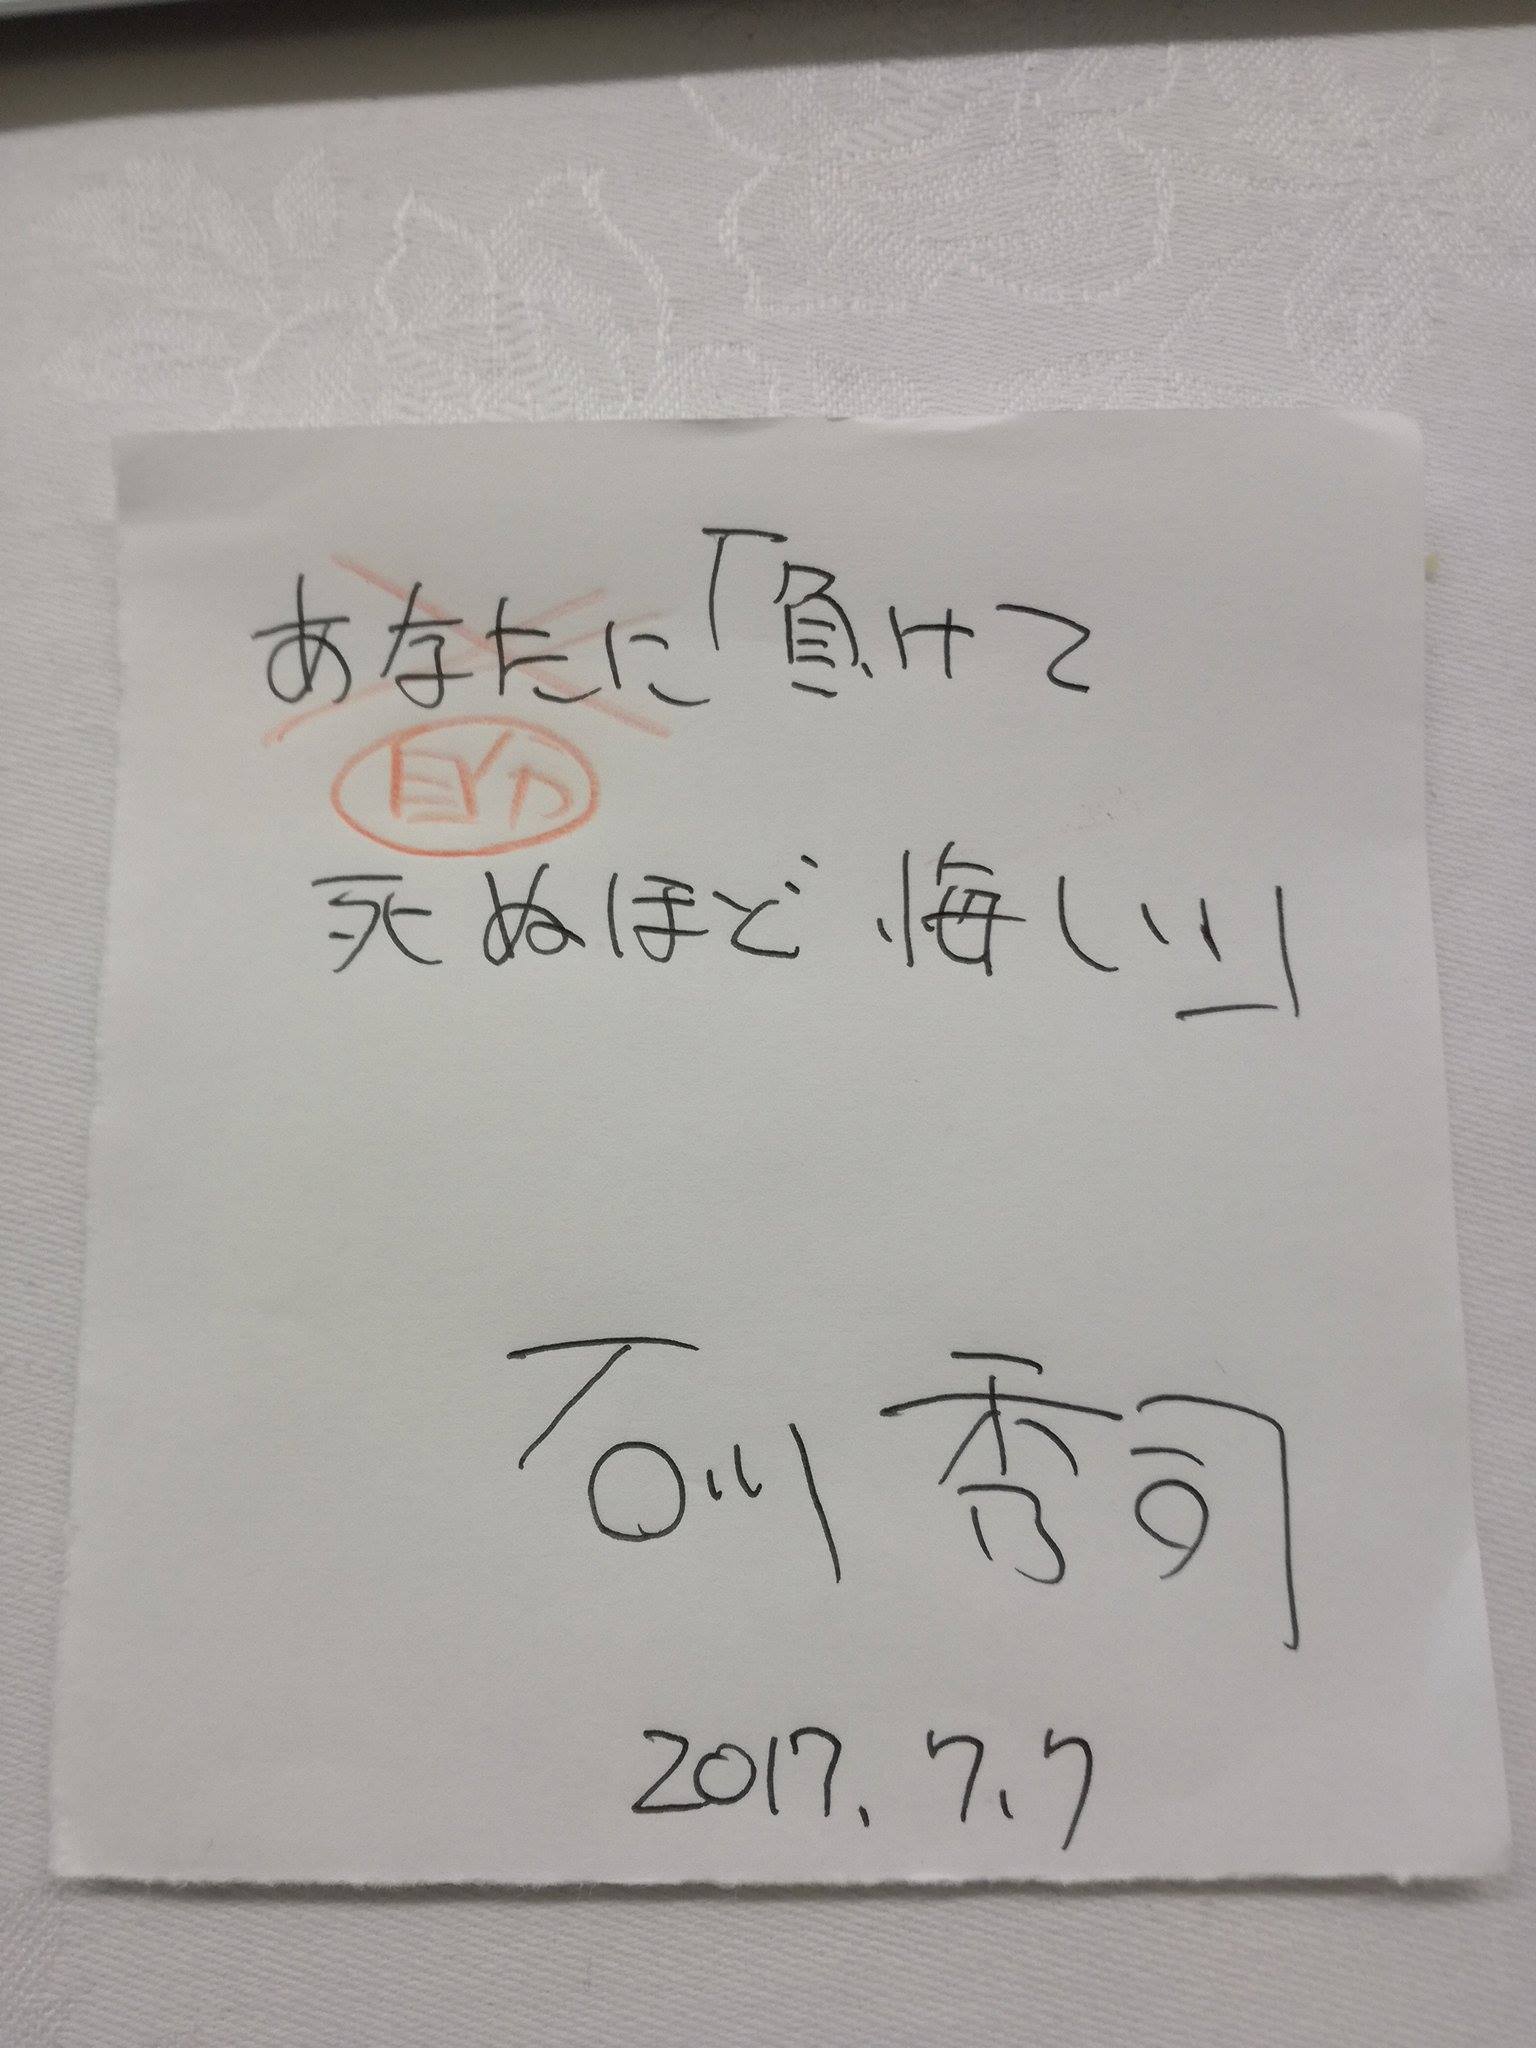 あなたに「負けて
死ぬほど悔しい」
石川 秀司
2017.7.7